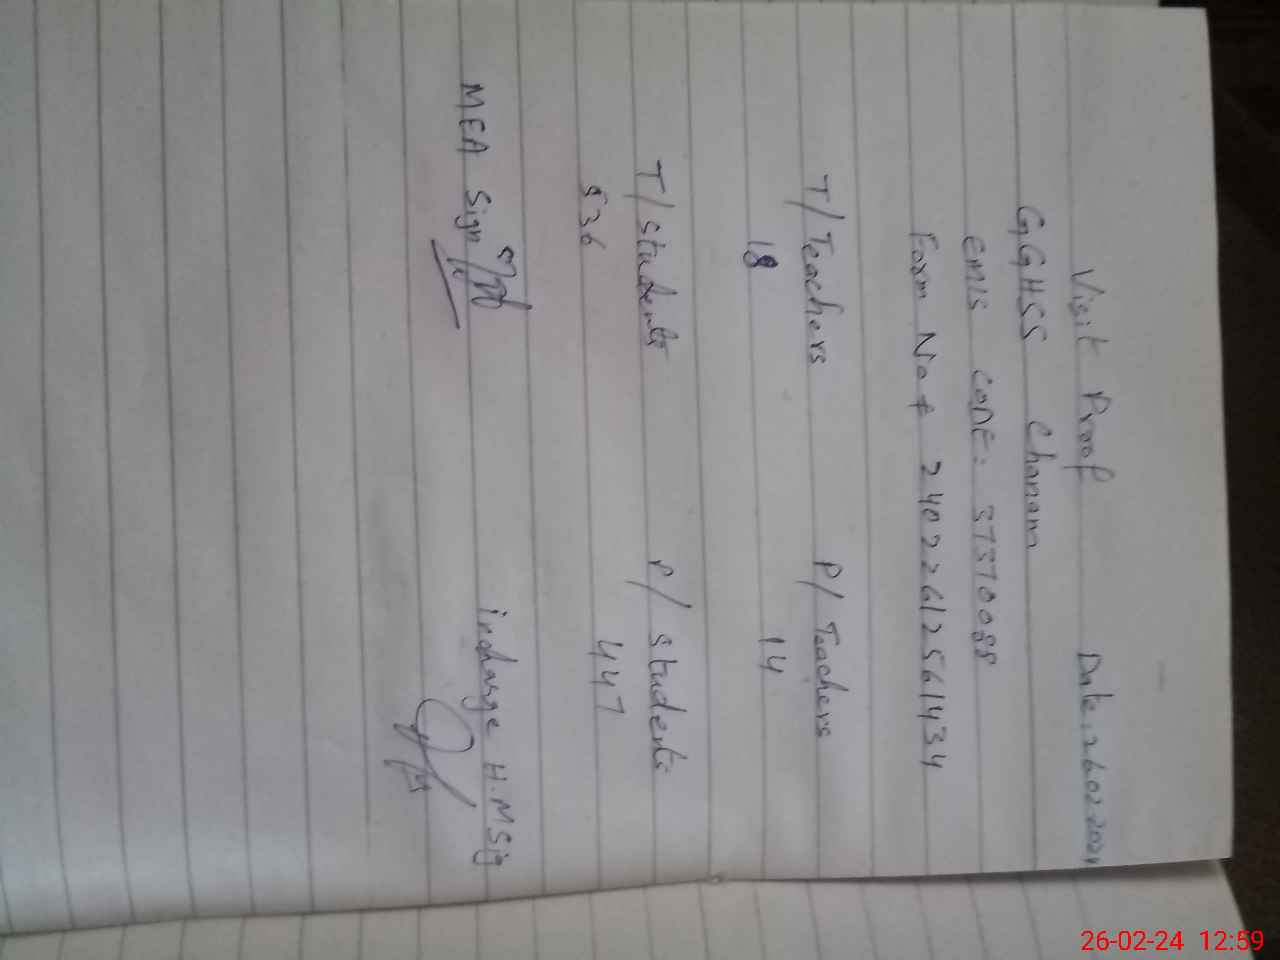 Visit Proof Date. 26.02.2024
GGHSS Chanam
EMIS CODE: 37370088
Form No # 24022612561434
T/Teachers P/Teachers
18 14
T/students P/students
536 447
MEA Sign incharge H.M Sig
26-02-24 12:59